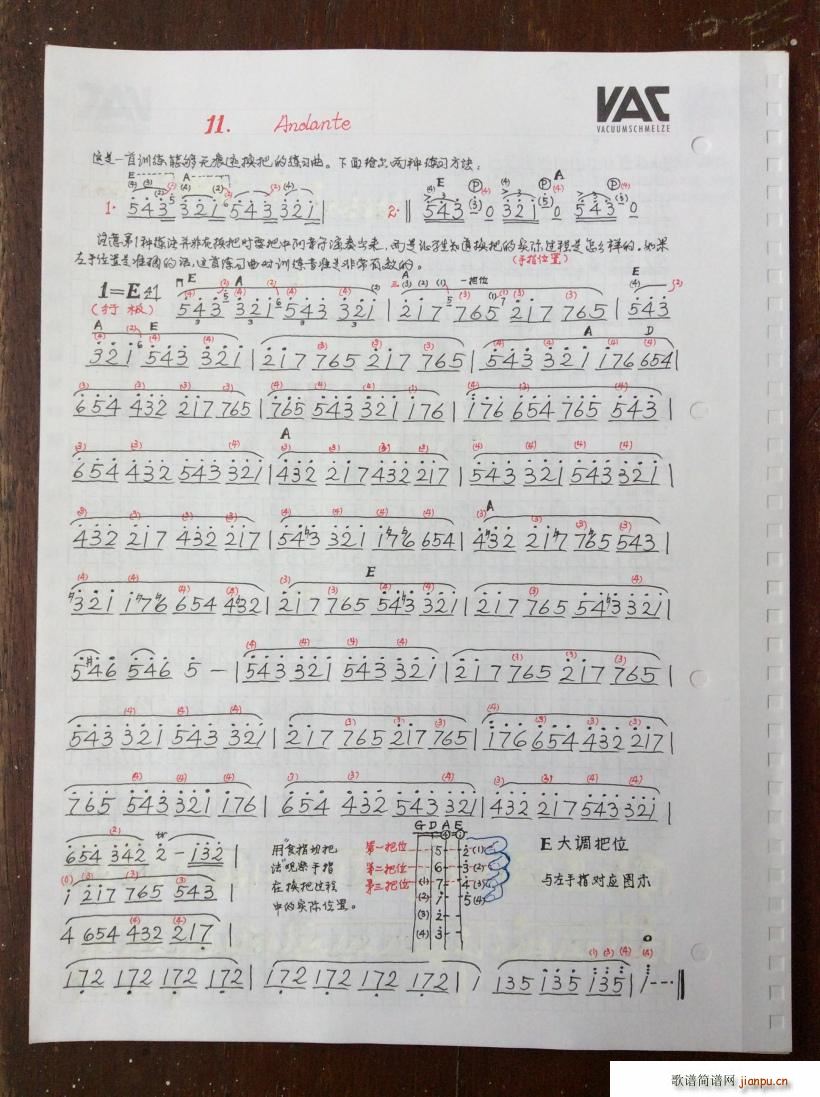 VAC
VACUUMSCHMELZE
11. Andante
这是一首训练能够无痕迹换把的练习曲。下面给出两种练习方法:
E A
1· 543 321 543 321 |
E A
2· || 543 0 321 0 543 0
左手位置是准确的话,这首练习曲对训练音准是非常有效的。
(手指位置)
1=E 4/4
(行板)
543 321 543 321 | 217 765 217 765 | 543
一把位
321 543 321 | 217 765 217 765 | 543 321 176 654 |
654 432 217 765 | 765 543 321 176 | 176 654 765 543 |
654 432 543 321 | 432 217 432 217 | 543 321 543 321 |
432 217 432 217 | 54b3 321 176 654 |
217 765 54b3 321 | 217 765 54b3 321 |
5#46 546 5 – | 543 321 543 321 | 217 765 217 765 |
543 321 543 321 | 217 765 217 765 | 176 654 432 217 |
765 543 321 176 | 654 432 543 321 | 432 217 543 321 |
654 342 2 – 132 |
1 217 765 543 |
4 654 432 217 |
用"食指切把
法"观察手指
在换把过程
中的实际位置。
G D A E
第一把位 5 2 (1)
第二把位 6 3 (2)
第三把位 (1) 7 4 (3)
(2) 1 5 (4)
(3) 2
(4) 3
E大调把位
与左手指对应图示
172 172 172 172 | 172 172 172 172 | 1 135 135 135 | 1---||
歌谱简谱网 jianpu.cn